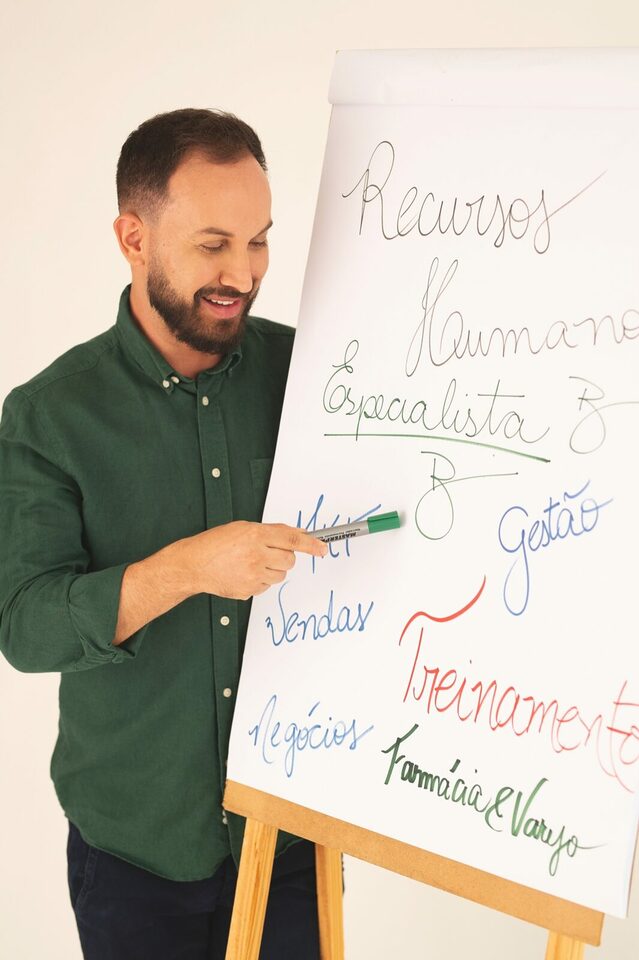 Recursos
Humano
Especialista
Mkt
Gestão
Vendas
Treinamento
Negócios
Farmácia & Varejo